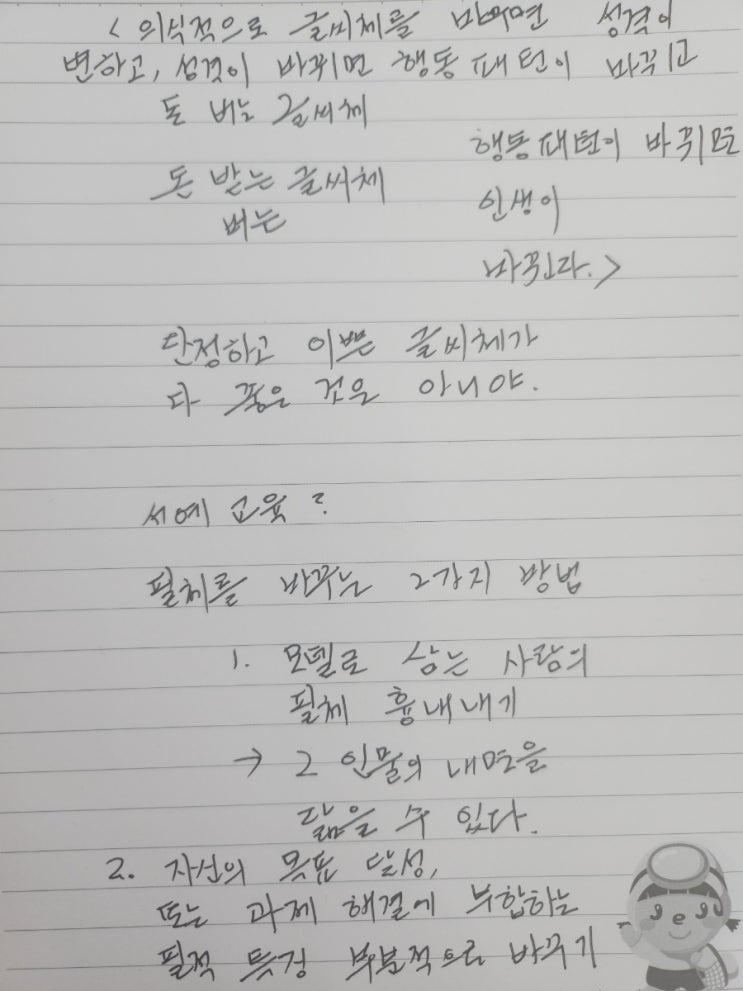 < 의식적으로 글씨체를 바꾸면 성격이
변하고, 성격이 바뀌면 행동패턴이 바뀌고
돈 버는 글씨체
행동패턴이 바뀌면
돈 받는 글씨체
버는
인생이
바뀐다. >
단정하고 이쁜 글씨체가
다 좋은 것은 아니야.
서예 교육?
필체를 바꾸는 2가지 방법
1. 모델로 삼는 사람의
필체 흉내내기
→ 그 인물의 내면을
닮을 수 있다.
2. 자신의 목표 달성,
또는 과제 해결에 부합하는
필적 특징 부분적으로 바꾸기
JeJu